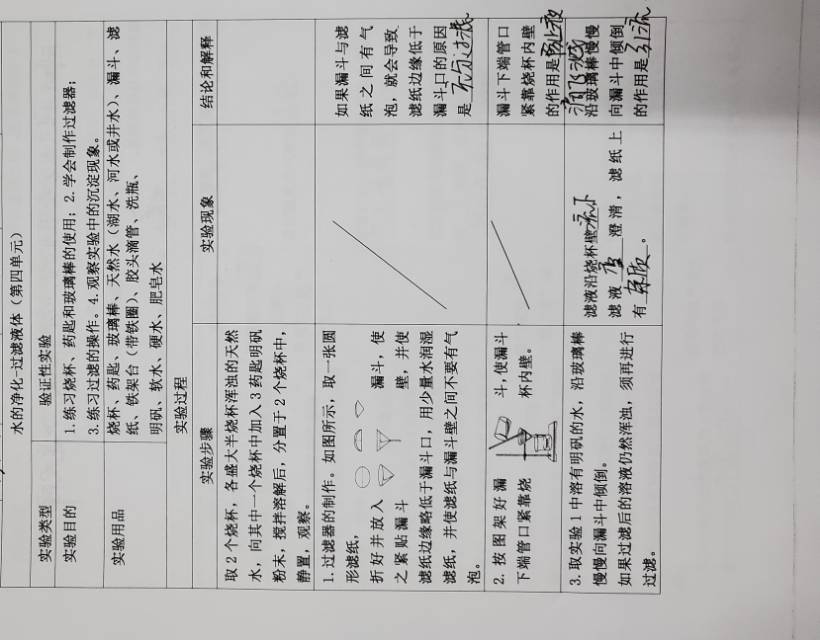 水的净化-过滤液体（第四单元）
实验类型
验证性实验
实验目的
1.练习烧杯、药匙和玻璃棒的使用；2.学会制作过滤器；
3.练习过滤的操作。4.观察实验中的沉淀现象。
实验用品
烧杯、药匙、玻璃棒、天然水（湖水、河水或井水）、漏斗、滤
纸、铁架台（带铁圈）、胶头滴管、洗瓶、
明矾、软水、硬水、肥皂水
实验过程
实验步骤
实验现象
结论和解释
取2个烧杯，各盛大半烧杯浑浊的天然
水，向其中一个烧杯中加入3药匙明矾
粉末，搅拌溶解后，分置于2个烧杯中，
静置，观察。
1.过滤器的制作。如图所示，取一张圆
形滤纸，
折好并放入 漏斗，使
之紧贴漏斗 壁，并使
滤纸边缘略低于漏斗口，用少量水润湿
滤纸，并使滤纸与漏斗壁之间不要有气
泡。
如果漏斗与滤
纸之间有气
泡，就会导致
滤纸边缘低于
漏斗口的原因
是 充分过滤
2. 按图架好漏 斗，使漏斗
下端管口紧靠烧 杯内壁。
漏斗下端管口
紧靠烧杯内壁
的作用是防止液
滴飞溅
3.取实验1中溶有明矾的水，沿玻璃棒
慢慢向漏斗中倾倒。
如果过滤后的溶液仍然浑浊，须再进行
过滤。
滤液沿烧杯壁流下
滤液 澄清，滤纸上
有杂质。
沿玻璃棒慢慢
向漏斗中倾倒
的作用是引流